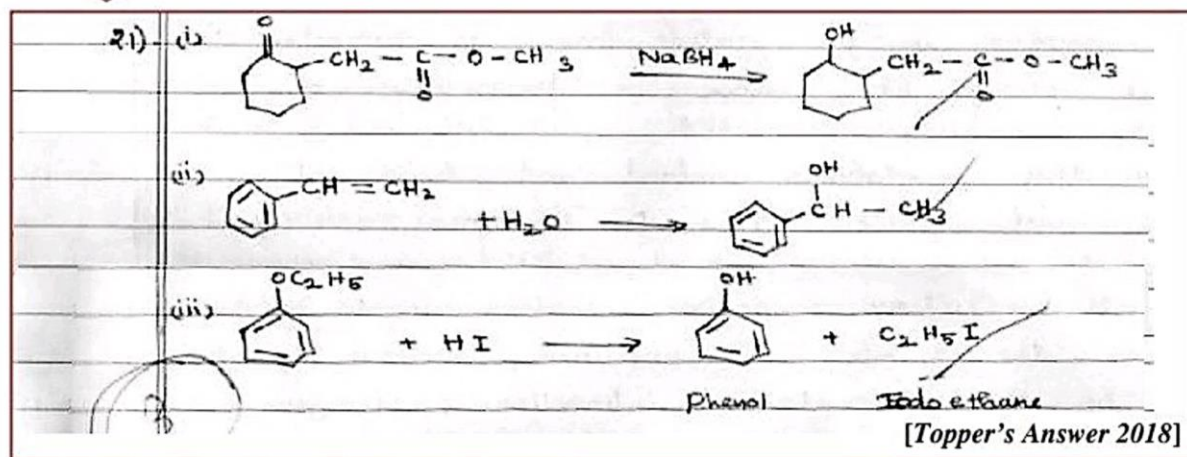 21) (i) O CH2 - C - O - CH3 NaBH4 OH CH2 - C - O - CH3
O O
(ii) CH = CH2 + H2O OH CH - CH3
(iii) OC2H5 + HI OH + C2H5I
Phenol Iodoethane
[Topper's Answer 2018]